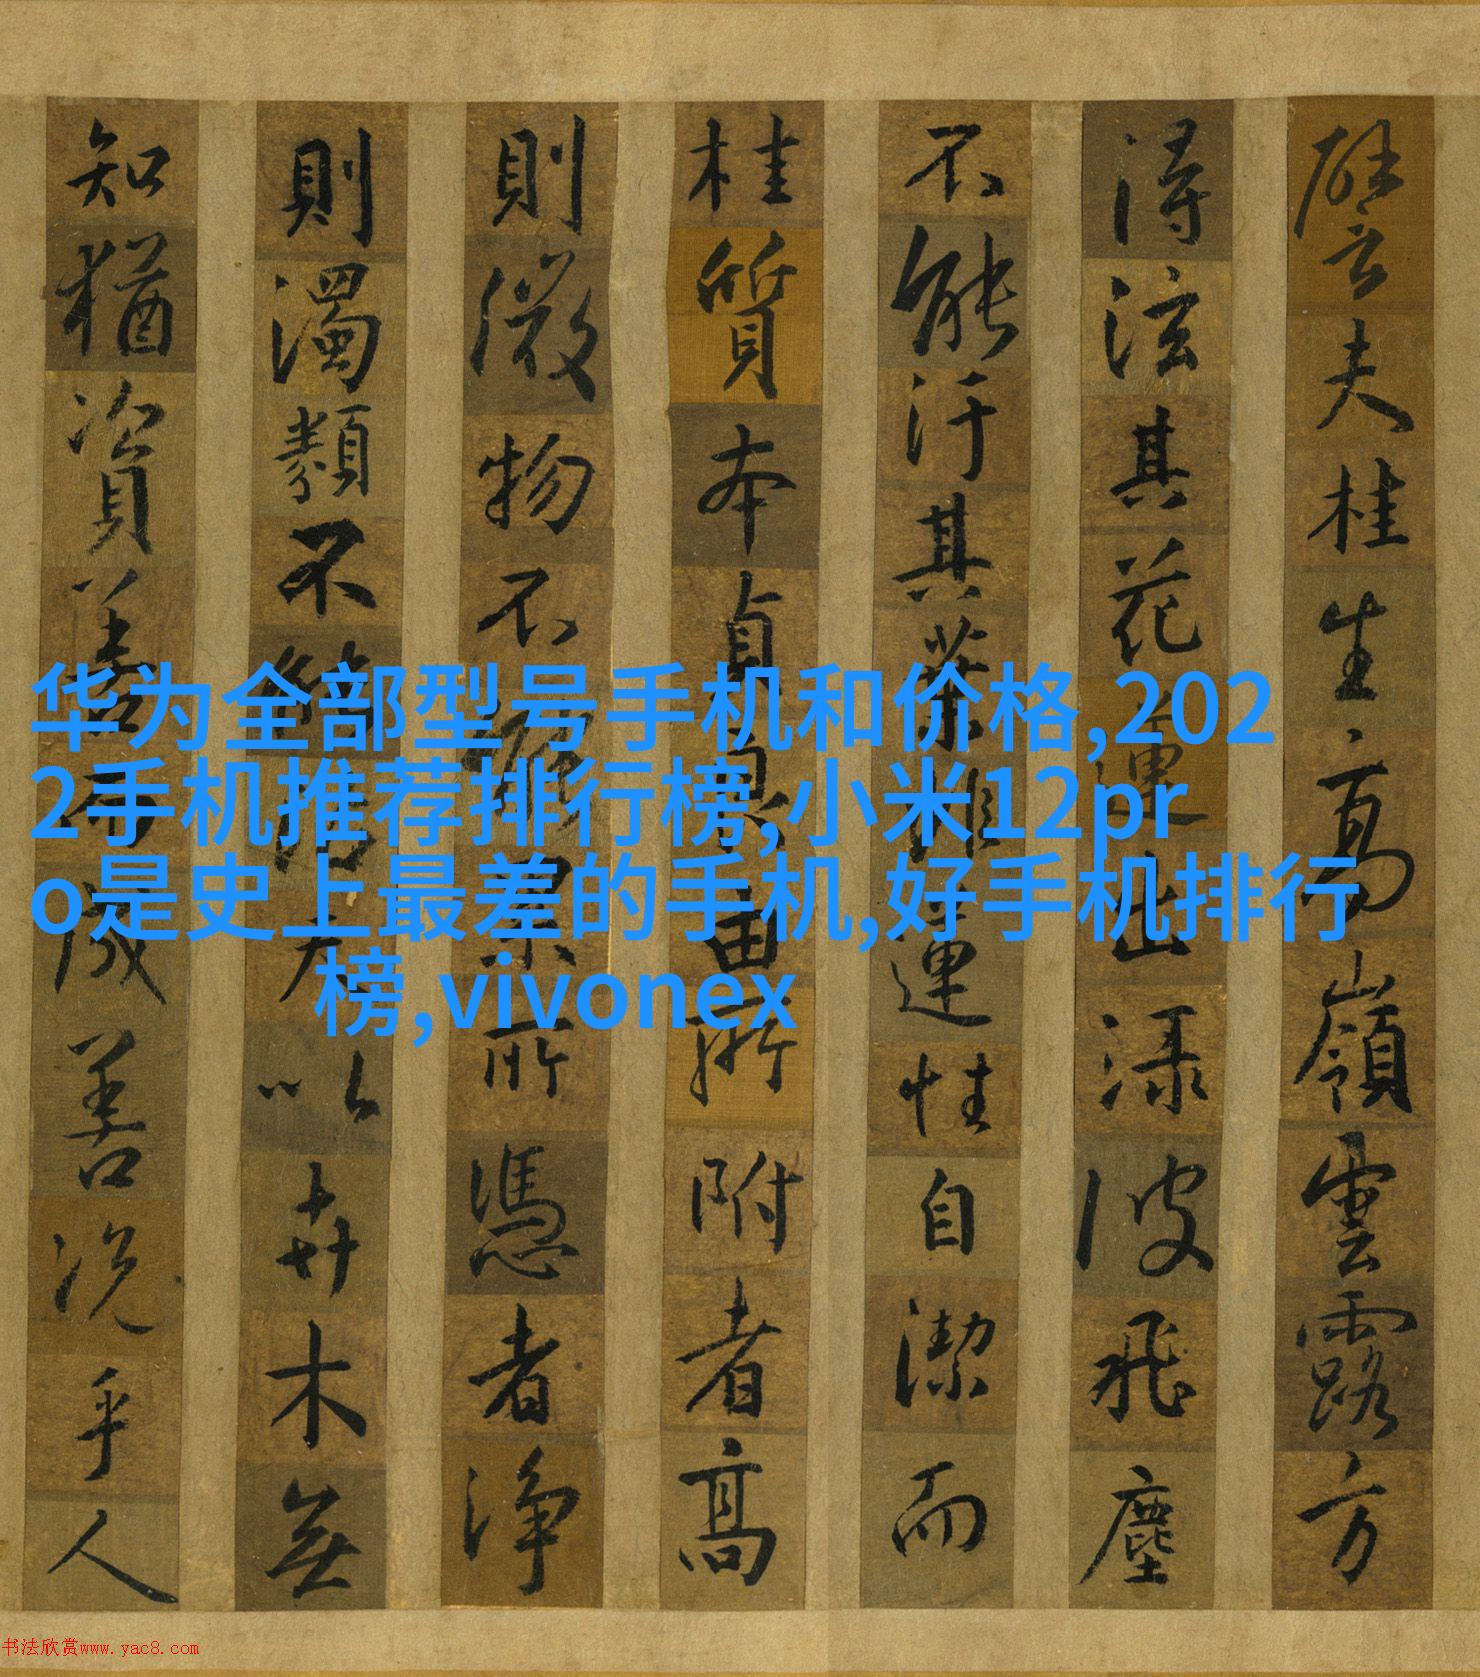 譬云夫桂生高嶺雲露方
得泫其花蓮出淥波飛塵
不能汙其葉非蓮性自潔而
桂質本貞良由所附者高
則微物不能累所憑者淨
則濁類不能沾夫以卉木無
知猶資善而成善況乎人
华为全部型号手机和价格,202
2手机推荐排行榜,小米12pr
o是史上最差的手机,好手机排行
榜,vivonex
书法欣赏www.yac8.com